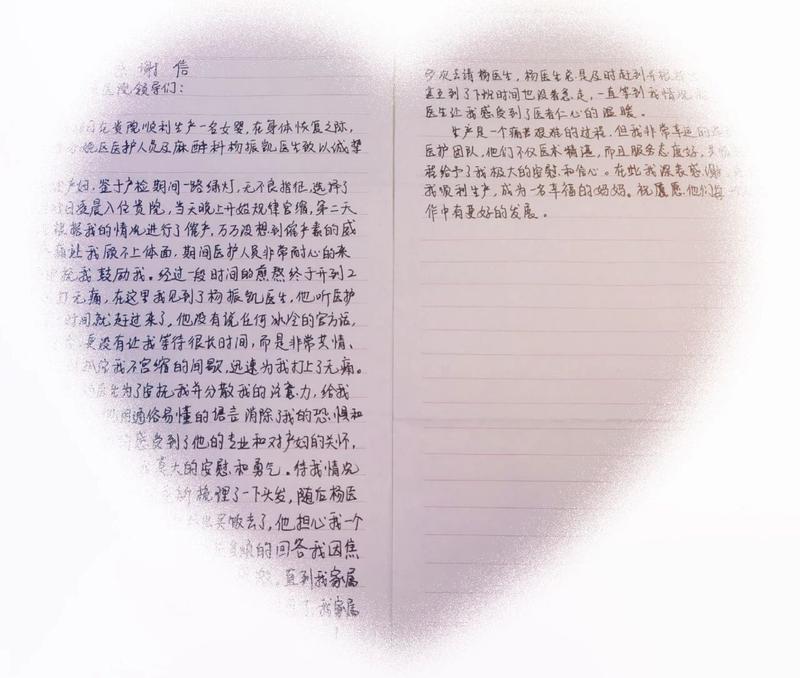 谢 信
医院领导们：
在贵院顺利生产一名女婴，在身体恢复之际，
娩区医护人员及麻醉科杨振凯医生致以诚挚
产妇，鉴于产检期间一路绿灯，无不良指征，选择了
日凌晨入住贵院，当天晚上开始规律宫缩，第二天
根据我的情况进行了催产，万万没想到催产素的威
痛让我顾不上体面，期间医护人员非常耐心的来
抚我鼓励我。经过一段时间的煎熬终于开到2
打无痛，在这里我见到了杨振凯医生，他听医护
时间就赶过来了，他没有说任何冰冷的官方话，
更没有让我等待很长时间，而是非常共情、
我不宫缩的间歇，迅速为我打上了无痛。
医生为了安抚我并分散我的注意力，给我
用通俗易懂的语言消除了我的恐惧和
感受到了他的专业和对产妇的关怀，
莫大的安慰和勇气。待我情况
新梳理了一下头发，随后杨医
买饭去了，他担心我一个
的回答我因焦
直到我家属
我家属
多次去请杨医生，杨医生总是及时赶到并
甚至到了下班时间也没着急走，一直等到我情况
医生让我感受到了医者仁心的温暖。
生产是一个痛苦艰难的过程，但我非常幸运的
医护团队，他们不仅医术精湛，而且服务态度好，
给予了我极大的安慰和信心。在此我深表感谢，
我顺利生产，成为一名幸福的妈妈。祝愿他们
作中有更好的发展。